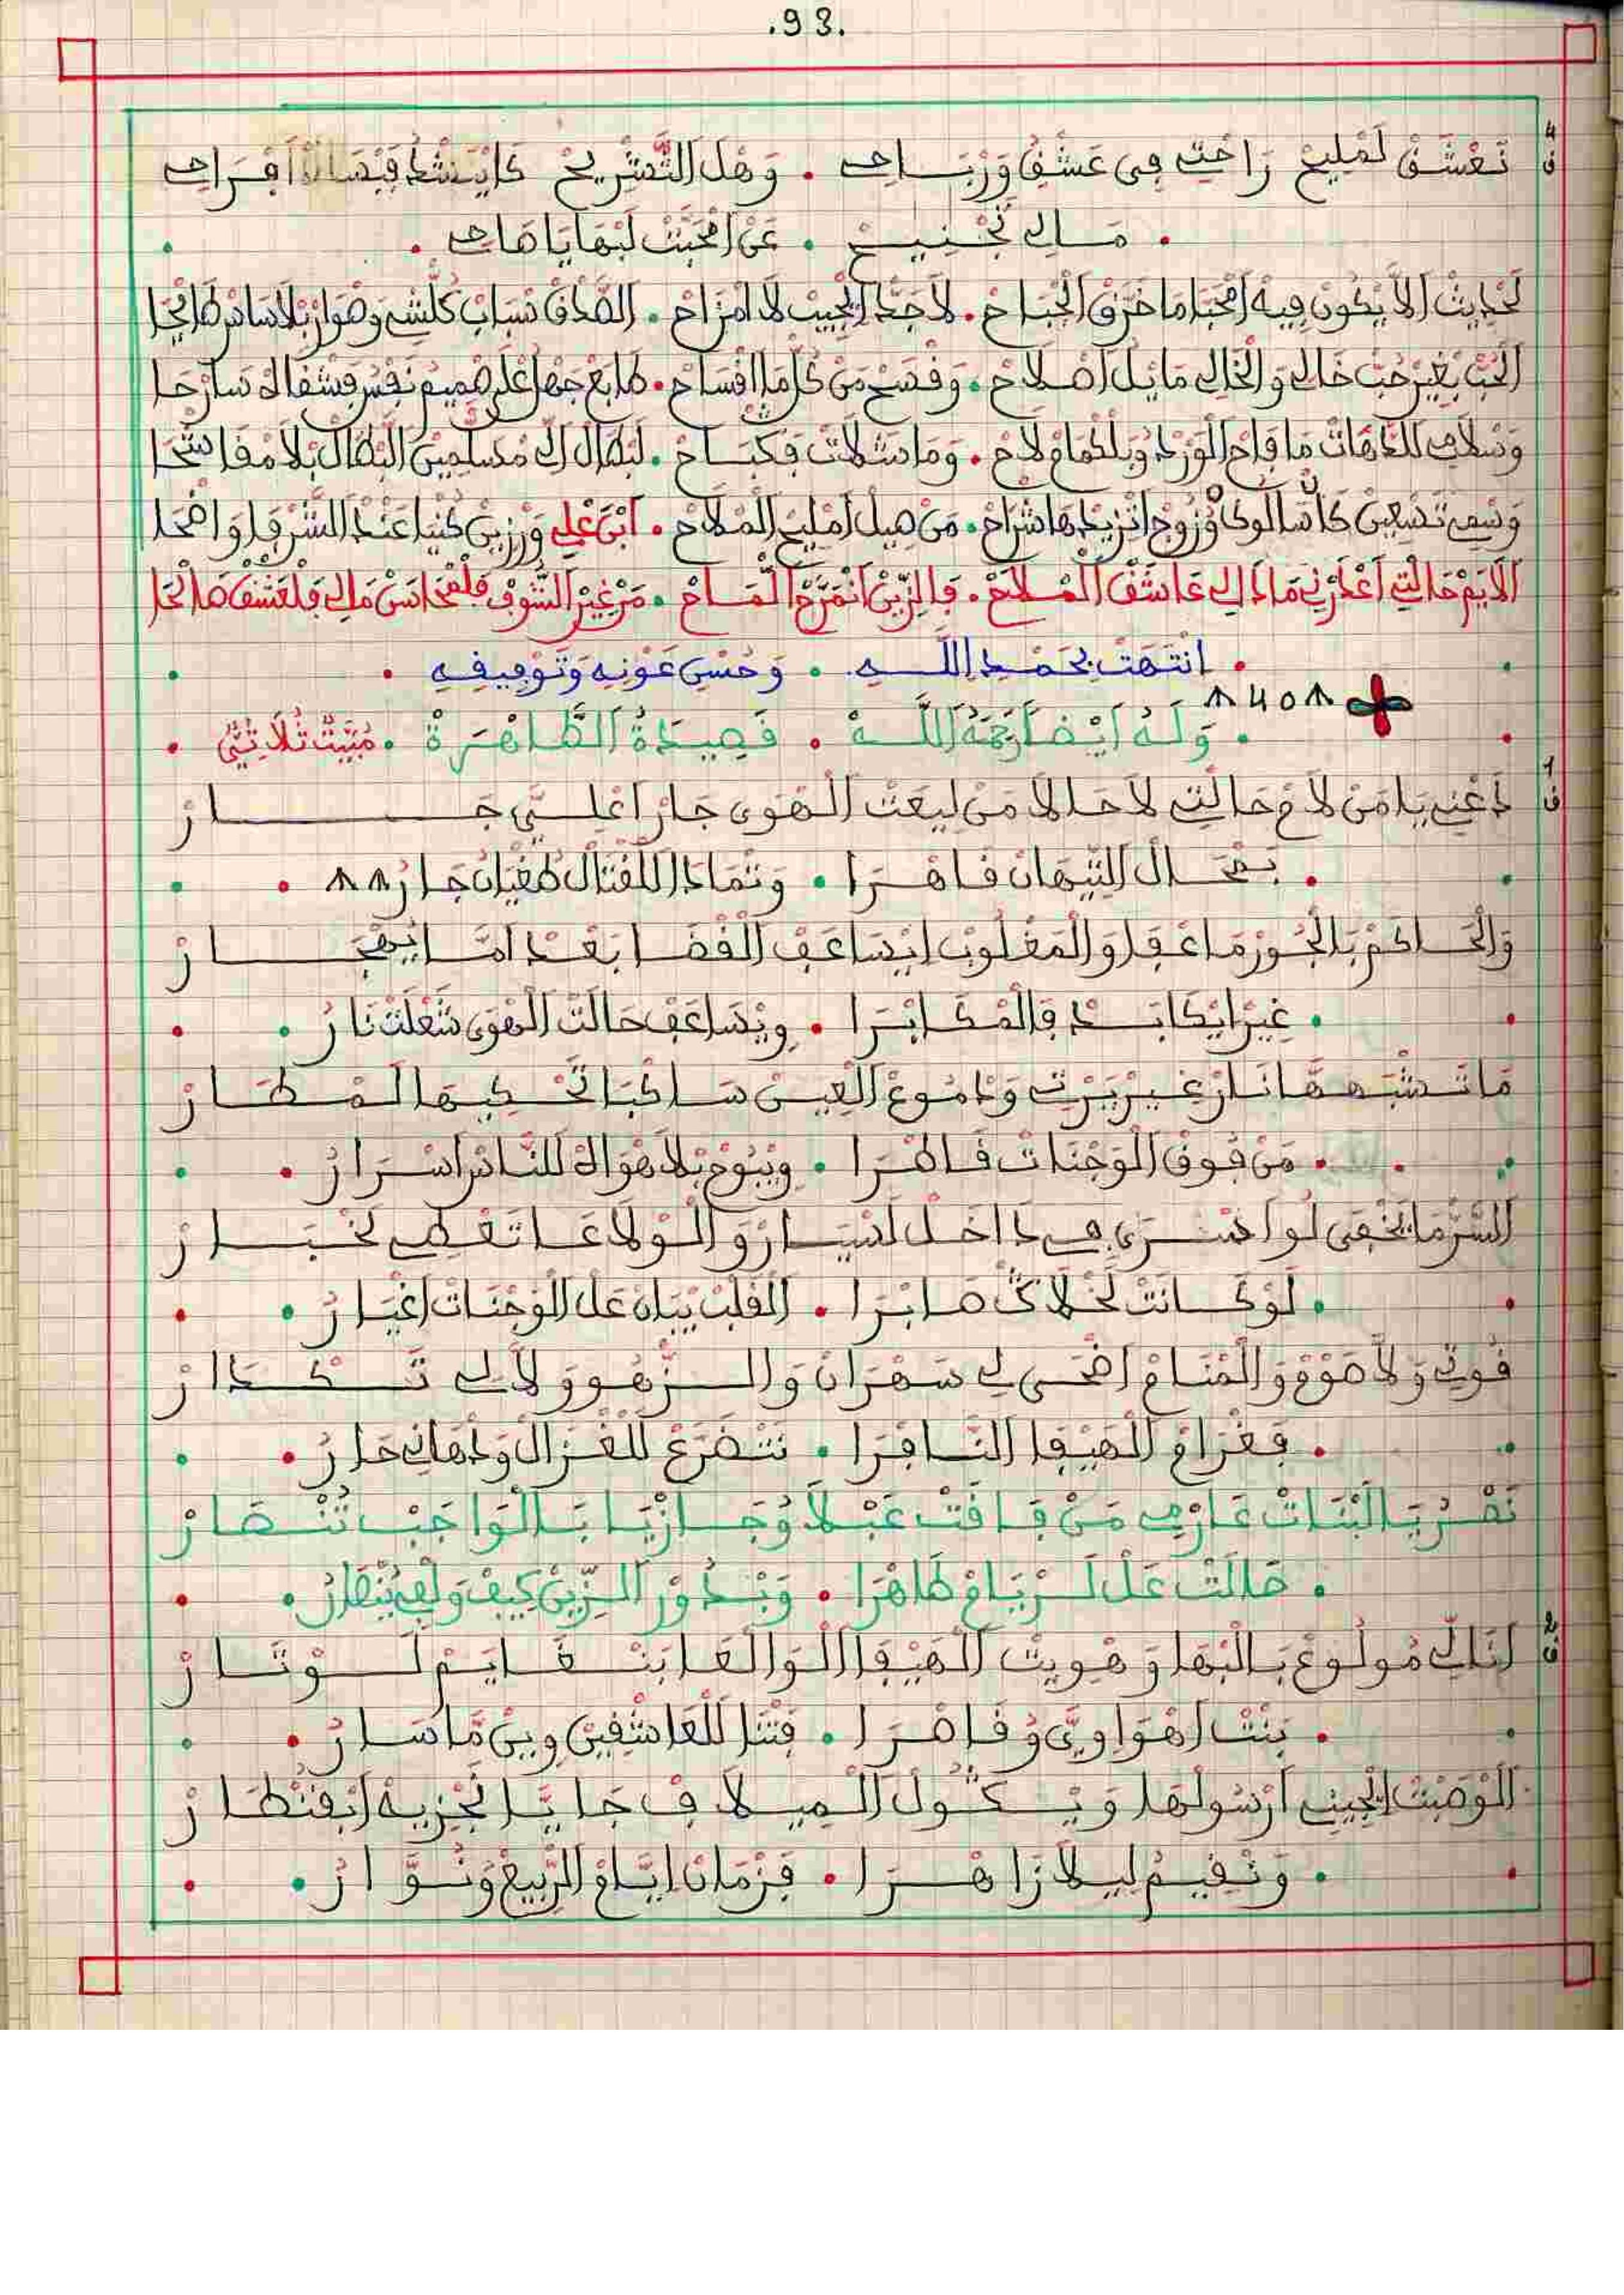 .93.
نَعْشَقْ لَمْلِيحْ رَاحْتِي فِي عَشْقُ وَرْبَاحِي • وَهْلَ التَّشْرِيحْ كَايَنْشَدْ أَفْرَاحِي
• مَالِي تَجْنِيحْ • عَنْ امْحَبَّتْ لَبْهَا يَا صَاحِ •
لَحْدِيثْ الاَّ يْكُونْ فِيهْ امْحَبَّا مَا خَرَّقْ الْجْبَاحْ • لاَ جَدّْ ايْجِيبْ لاَ امْزَاحْ • الصَّدْقْ سْبَابْ كُلْشِي وَهْوَ ازْ بْلاَ سَاسْ طَايْحَا
الْحُبّْ بْغِيرْ حُبّْ خَالِي وَالْخَالِي مَا يْلُ اصْلاَحْ • وَفْصَحْ مَنْ كُلّْ مَا افْسَاحْ •
وَسْلاَمِي لَلدّْهَاتْ مَا فَاحْ الْوَرْدْ وُبَلْكْمَامْ لاَحْ • وَمَا فَكْبَاحْ • لَبْطَالْ الِّي مْسَلّْمِينْ الْبْطَالْ بْلاَ مْفَاتْحَا
وَسْمِي تَسْعِينْ وُزُوجْ اتْزِيدْهَا شْرَاحْ • مَنْ هِيلْ امْلِيحْ الْمْلاَحْ • ابْنْ عْلِي وَرْزِينْ كُنْيَا عَنْدْ الشُّرْفَا وَاضْحَا
الاَيَمْ حَالْتِي اعْدَرْنِي مَادَالِي عَاشَقْ الْمْلاَحْ • فَالزِّينْ انْمَرَّحْ الْمَاحْ • مَنْ غِيرْ الشُّوفْ مَالِي فَلْعَشْقْ صَالْحَا
• انْتَهَتْ بِحَمْدِ اللَّهِ • وَحُسْنِ عَوْنِهِ وَتَوْفِيقِهِ •
٨ 40 ٨
• وَلَهُ أَيْضًا رَحِمَهُ اللَّهُ • قَصِيدَةُ الطَّاهْرَةْ • مُبَيَّتْ ثُلاَثِيّْ •
دَعْنِي يَا مَنْ لاَمْ حَالْتِي لاَ حَالاَ مَنْ لِيعَتْ الْهْوَى جَارْ اعْلِيَّ جَارْ
• بَمْحَالْ التِّيهَانْ قَاهْرَا • وَتْمَادَا لَلْقْتَالْ طُغْيَانْ جَارُ ٨٨ •
وَالْحَاكَمْ بَالْجُورْ مَا عْفَا وَالْمَغْلُوبْ ايْسَاعَفْ الْقْضَا بَعْدْ امَّا يَهْجَارْ
• غِيرْ ايْكَابَدْ فَالْمْكَابْرَا • وِيْسَاعَفْ حَالَتْ الْهْوَى شَعْلَتْ نَارُ •
مَا تَشْبَهْهَا نَارْ غِيرْ وَدْمُوعْ الْعِينْ سَاكْبَا تَحْكِيهَا لَمْطَارْ
• مَنْ فُوقْ الْوَجْنَاتْ قَاطْرَا • وِيْبُوحْ بْلاَ هْوَاهْ لَلنَّاسْ اسْرَارُ •
السَّرّْ مَا يَخْفَى لُو اسْرَى فِي دَاخَلْ لَسْيَارْ وَالْوْلاَعَا تَعْطِي لَخْبَارْ
• لَوْ كَانَتْ لَخْلاَݣْ صَابْرَا • الْقَلْبْ يْبَانْ عَلْ الْوَجْنَاتْ اغْيَارُ •
قُوتِي وَلاَ صَوْمْ وَالْمْنَامْ اضْحَى لِي سَهْرَانْ وَالزّْهُو وَلاَّ لِي تَكْدَارْ
• فَغْرَامْ الْهِيفَا النَّافْرَا • نَتْضَرَّعْ لَلْغْزَالْ وَدْهَانِي حَارُ •
نَصْرُ يَا الْبْنَاتْ عَارْمِي مَنْ فَاقَتْ عَبْلاَ وُجَازْيَا بَالْوَاجَبْ تُنْصَارْ
• صَالَتْ عَلْ لَرْيَامْ طَاهْرَا • وَبْدُورْ الزِّينْ كِيفْ وَلْفِي يُنْصَارُ •
انَا الِّي مُولُوعْ بَالْبْهَا وَهْوِيتْ الْهِيفَا الْوَالْعَا بَنْغَايَمْ لَوْتَارْ
• بَنْتْ اهْوَاوِيَّ وُقَاصْرَا • فَتْنَا لَلْعَاشْقِينْ وِينْ مَا سَارُ •
الْوْصَبْتْ الْجِيتْ ارْسُولْهَا وَيْݣُولْ الْمِيلاَفْ جَا يَا لَجْزِيهْ ابْقَنْطَارْ
• وَنْقِيمْ لِيلاَ زَاهْرَا • فَزْمَانْ ايَّامْ الرّْبِيعْ وَنُوَّارُ •